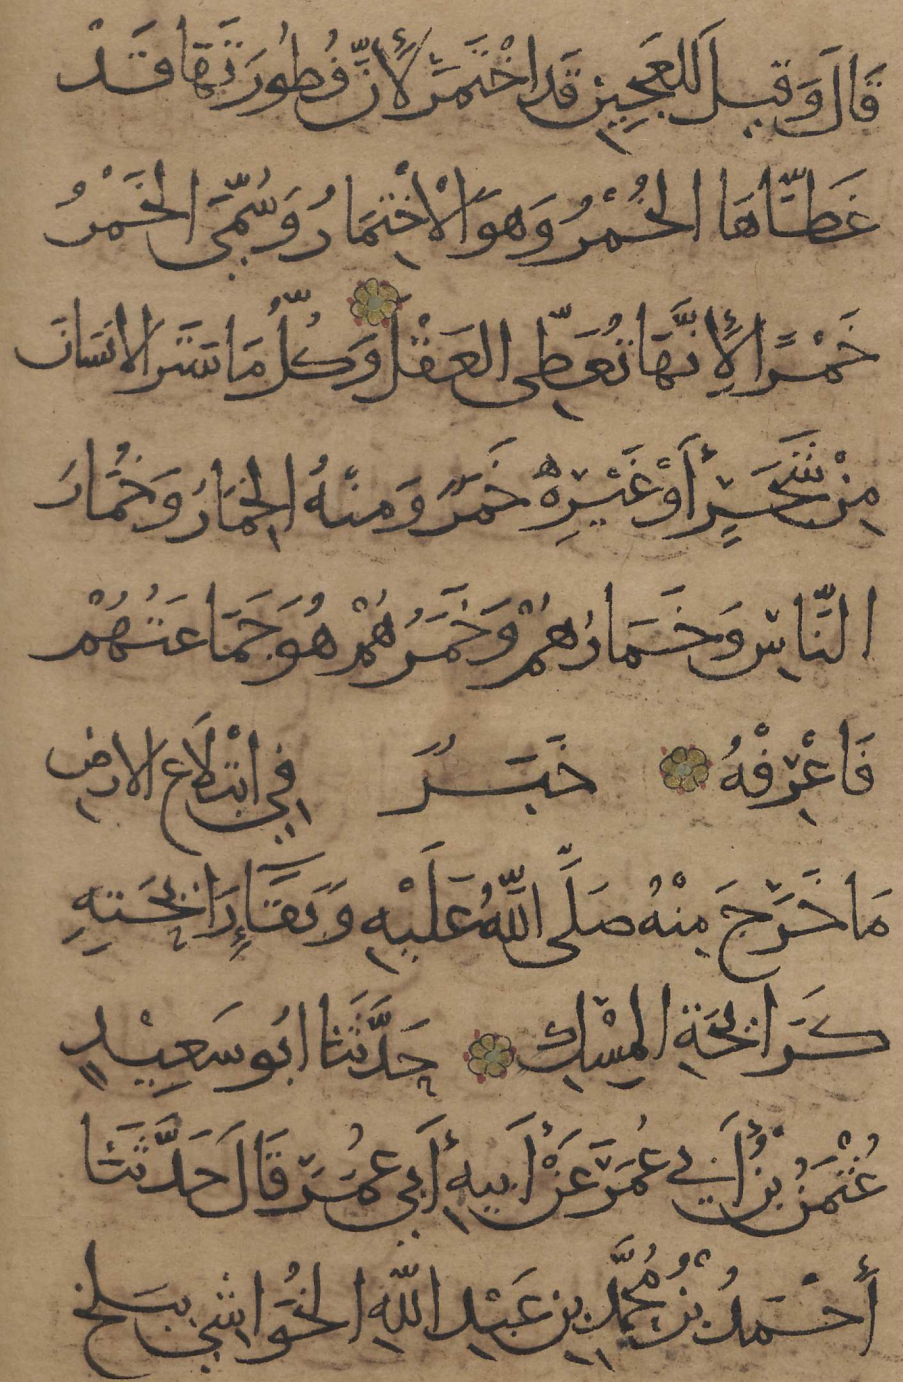 قَالَ وَقِيلَ لِلعَجِينِ قَد اخْتَمَرَ لِأَنَّ فُطُورَتَهَا قَدْ
غَطَّاهَا الخُمْرُ وَهوَ الْاخْتِمَارُ وَسُمِّيَ الخَمْرُ
خَمْرًا لِأَنَّهَا تُغَطِّى العَقْلَ وَكُلُّ مَا سَتَرَ الانسَانَ
مِنْ شَجَرٍ أَوْ غَيْرِهِ خَمَرٌ وَمنهُ الخِمَارُ وَخُمَارُ
النَّاسِ وَخَمَارُهُمْ وَخَمَرُهُمْ هُوَ جَمَاعَتُهُمْ
فَاعْرِفْهُ خَبَرٌ فِي ابْتِلَاعِ الارضِ
مَا خَرَجَ مِنْهُ صَلَّى اللّٰهُ عَلَيْهِ وَبَقَاءِ رَائِحَتِهِ
كَرَائِحَةِ المِسْكِ حَدَّثَنَا ابُو سَعِيْدٍ
عُثْمَنُ بْنُ أَبِي عُمَرَ عَنْ أَبِيهِ أَبِي عُمَرَ قَالَ حَدَّثَنَا
أَحْمَدُ بْنُ مُحَمَّدِ بنِ عَبْدِ اللّٰهِ الخُوَاشِي ببَلخ